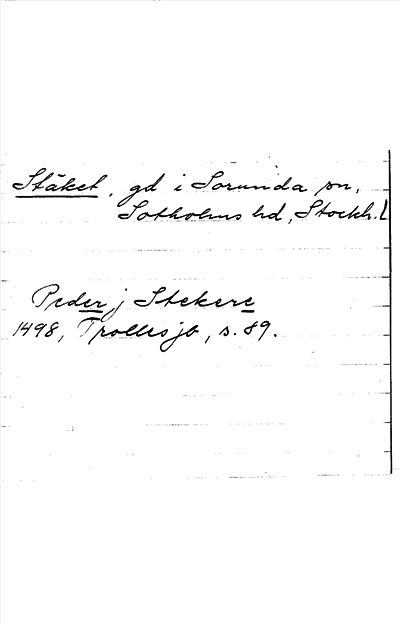 Stäket, gd i Sorunda sn,
Sotholms hd, Stockh. l
Peder j Stekere
1498, Trolles jb, s. 89.